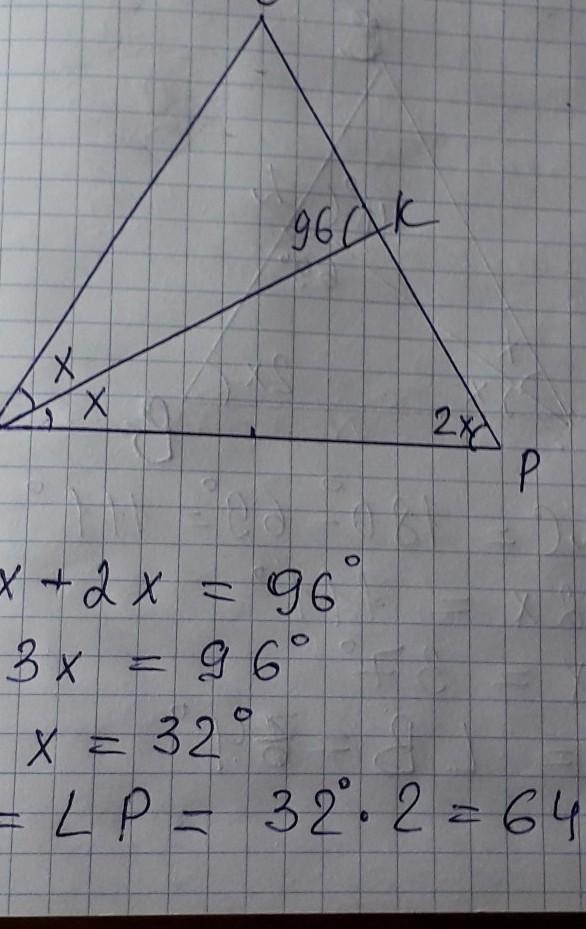 96
K
x
x
2x
P
x + 2x = 96°
3x = 96°
x = 32°
= ∠ P = 32° · 2 = 64